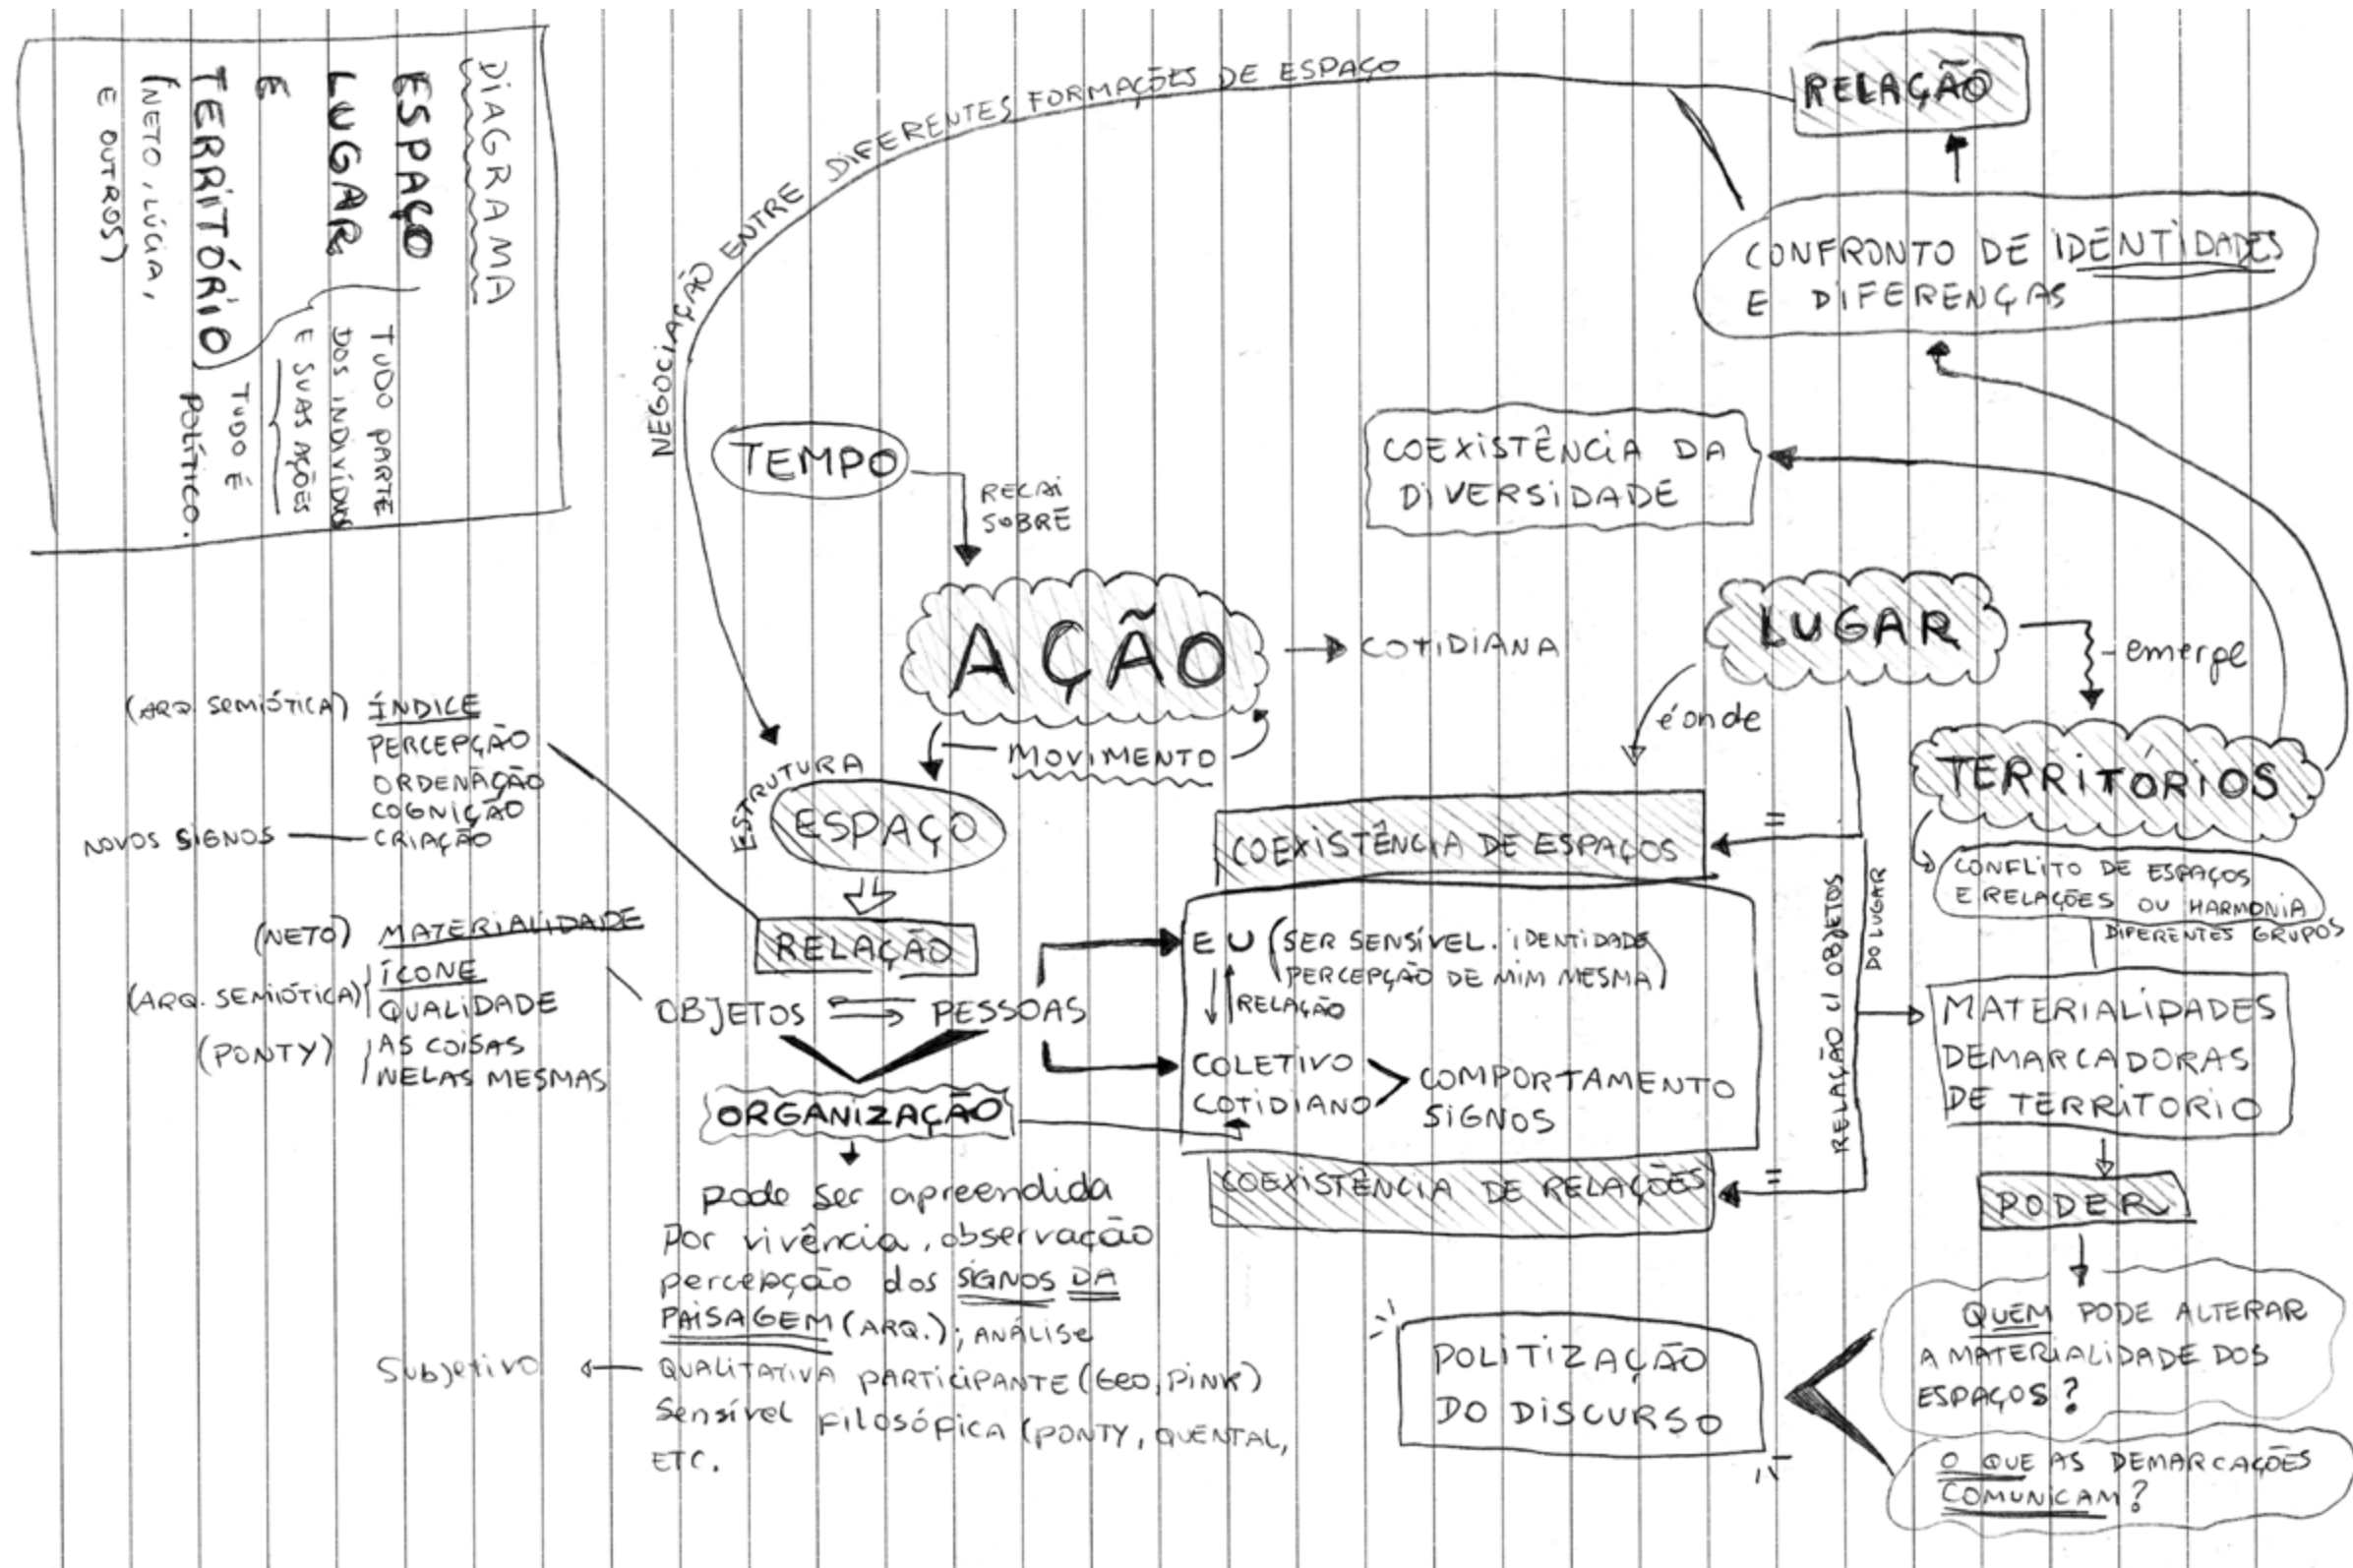 DIAGRAMA
ESPAÇO
LUGAR
E
TERRITÓRIO
(NETO, LÚCIA,
E OUTROS)
TUDO PARTE
DOS INDIVÍDUOS
E SUAS AÇÕES
TUDO É
POLÍTICO.
NEGOCIAÇÃO ENTRE DIFERENTES FORMAÇÕES DE ESPAÇO
RELAÇÃO
CONFRONTO DE IDENTIDADES
E DIFERENÇAS
TEMPO
RECAI
SOBRE
COEXISTÊNCIA DA
DIVERSIDADE
AÇÃO
COTIDIANA
LUGAR
emerge
é onde
MOVIMENTO
TERRITÓRIOS
CONFLITO DE ESPAÇOS
E RELAÇÕES OU HARMONIA
DIFERENTES GRUPOS
(ARQ. SEMIÓTICA) ÍNDICE
PERCEPÇÃO
ORDENAÇÃO
COGNIÇÃO
NOVOS SIGNOS CRIAÇÃO
ESTRUTURA
ESPAÇO
RELAÇÃO
(NETO) MATERIALIDADE
(ARQ. SEMIÓTICA) ÍCONE
QUALIDADE
(PONTY) AS COISAS
NELAS MESMAS
OBJETOS PESSOAS
ORGANIZAÇÃO
COEXISTÊNCIA DE ESPAÇOS
=
EU (SER SENSÍVEL. IDENTIDADE
PERCEPÇÃO DE MIM MESMA)
RELAÇÃO
COLETIVO
COTIDIANO
COMPORTAMENTO
SIGNOS
COEXISTÊNCIA DE RELAÇÕES
=
RELAÇÃO C/ OBJETOS
DO LUGAR
MATERIALIDADES
DEMARCADORAS
DE TERRITÓRIO
PODER
QUEM PODE ALTERAR
A MATERIALIDADE DOS
ESPAÇOS?
O QUE AS DEMARCAÇÕES
COMUNICAM?
POLITIZAÇÃO
DO DISCURSO
pode ser apreendida
Por vivência, observação
percepção dos SIGNOS DA
PAISAGEM (ARQ.); ANÁLISE
Subjetivo QUALITATIVA PARTICIPANTE (GEO, PINK)
Sensível FILOSÓFICA (PONTY, QUENTAL,
ETC.